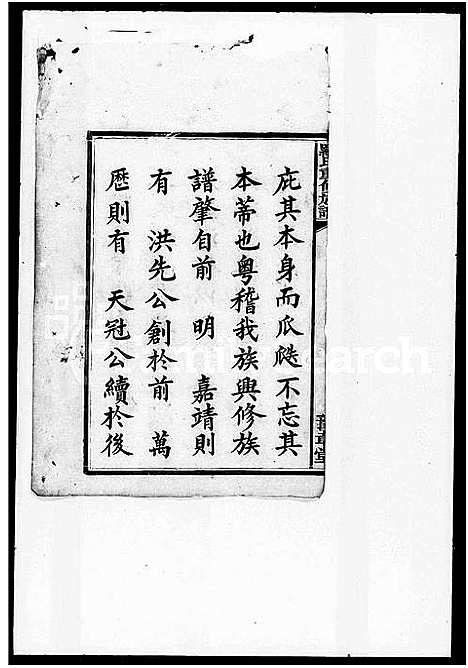 庇其本身而瓜瓞不忘其
本蒂也粤稽我族興修族
譜肇自前 明 嘉靖則
有 洪先公創於前 萬
歷則有 天冠公續於後